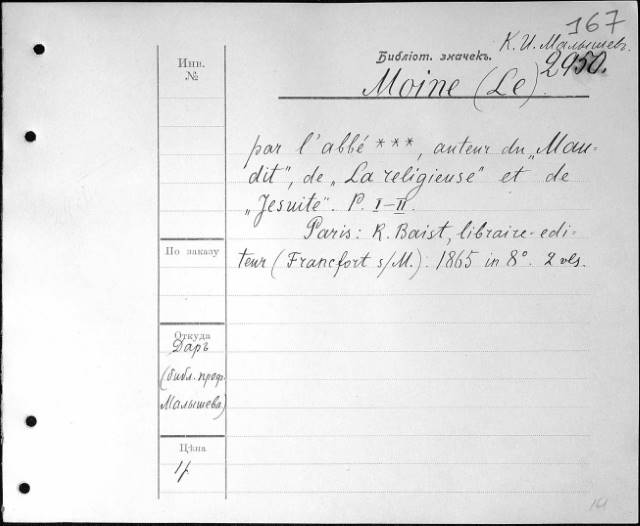 167
К. И. Малышев.
Инв.
№
Библіот. значекъ.
2950.
Moine (Le)
par l'abbé ***, auteur du „Mau-
dit", de „La religieuse" et de
„Jesuite". P. I–II.
Paris: R. Baist, libraire-edi-
teur (Francfort s/M.). 1865 in 8°. 2 vls.
По заказу
Откуда
Даръ
(библ. проф.
Малышева)
Цѣна